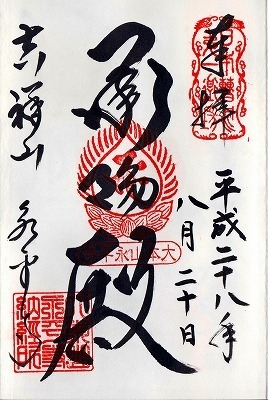 奉拝
平成二十八年
八月二十日
承陽殿
大本山永平寺
吉祥山
永平寺